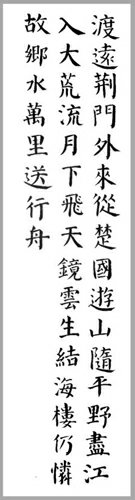 渡遠荊門外來從楚國遊山隨平野盡江
入大荒流月下飛天鏡雲生結海樓仍憐
故鄉水萬里送行舟